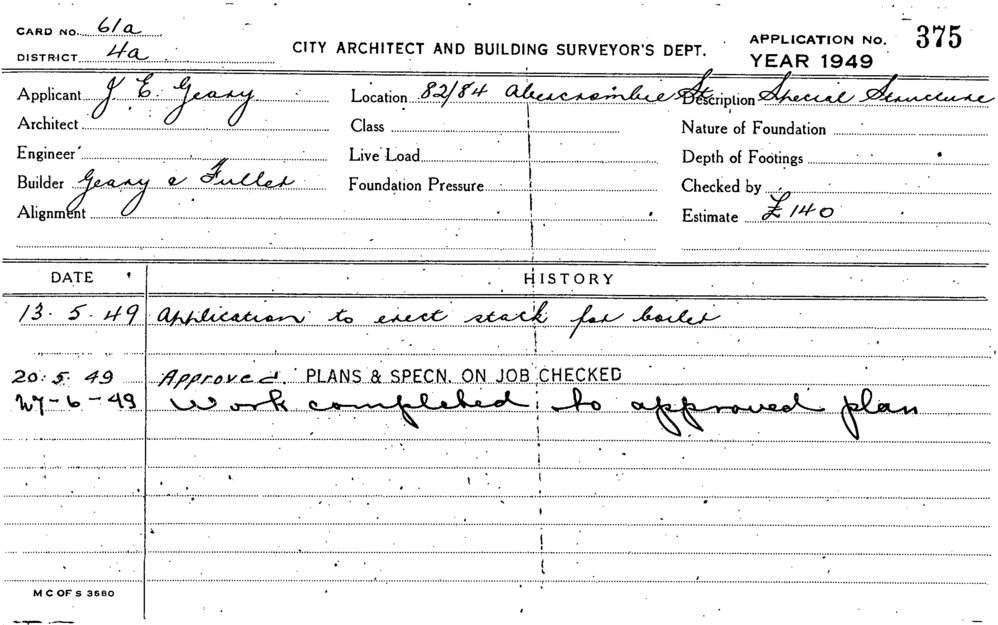 CARD NO. 61a
DISTRICT 4a
CITY ARCHITECT AND BUILDING SURVEYOR'S DEPT.
APPLICATION No. 375
YEAR 1949
Applicant J E. Geary
Location 82/84 Abercrombie St
Description Special Structure
Architect
Class
Nature of Foundation
Engineer
Live Load
Depth of Footings
Builder Geary & Fuller
Foundation Pressure
Checked by
Alignment
Estimate £140
DATE HISTORY
13.5.49 Application to erect stack for boiler
20.5.49 Approved. PLANS & SPECN. ON JOB CHECKED
27-6-49 Work completed to approved plan
M C OF S 3580